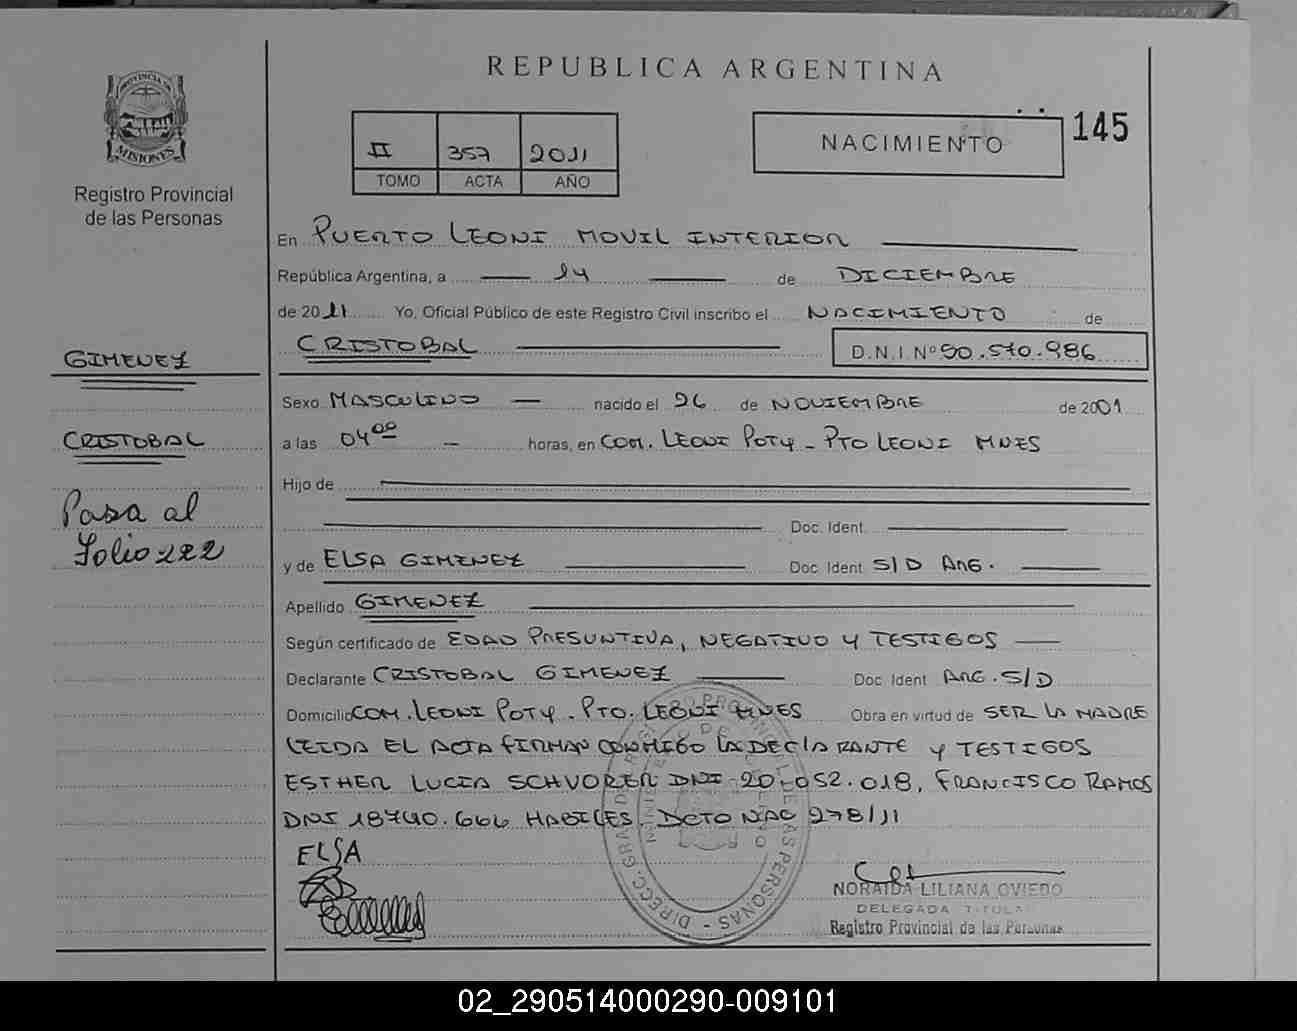 REPUBLICA ARGENTINA
PROVINCIA DE
MISIONES
Registro Provincial
de las Personas
II 357 2011
TOMO ACTA AÑO
NACIMIENTO
145
En PUERTO LEONI MOVIL INTERIOR
República Argentina, a 14 de DICIEMBRE
de 2011 Yo, Oficial Público de este Registro Civil inscribo el NACIMIENTO de
CRISTOBAL D.N.I.Nº 50.570.986
GIMENEZ
CRISTOBAL
Pasa al
folio 222
Sexo MASCULINO nacido el 26 de NOVIEMBRE de 2001
a las 04 00 horas, en COM. LEONI POTY - PTO LEONI MNES
Hijo de
Doc. Ident.
y de ELSA GIMENEZ Doc. Ident S/D ARG.
Apellido GIMENEZ
Según certificado de EDAD PRESUNTIVA, NEGATIVO Y TESTIGOS
Declarante CRISTOBAL GIMENEZ Doc. Ident ARG. S/D
Domicilio COM. LEONI POTY. PTO. LEONI MNES Obra en virtud de SER LA MADRE
LEIDA EL ACTA FIRMAN CONMIGO LA DECLARANTE Y TESTIGOS
ESTHER LUCIA SCHVORER DNI 20.052.018, FRANCISCO RAMOS
DNI 18740.666 HABILES. DCTO NAC 278/11
ELSA
NORAIDA LILIANA OVIEDO
DELEGADA TITULAR
Registro Provincial de las Personas
02_290514000290-009101